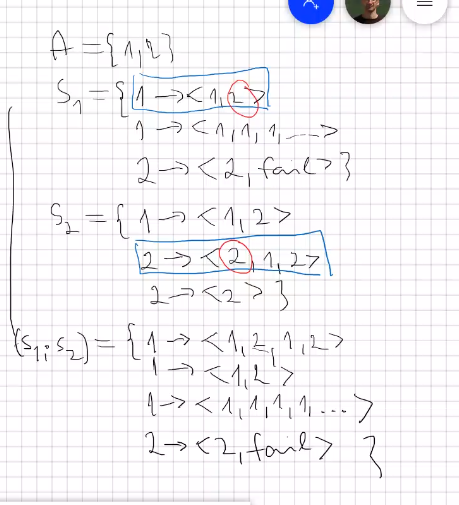 A = {1,2}
S₁ = { 1 → <1,2>
1 → <1,1,1,....>
2 → <2, fail> }
S₂ = { 1 → <1,2>
2 → <2,1,2>
2 → <2> }
(S₁;S₂) = { 1 → <1,2,1,2>
1 → <1,2>
1 → <1,1,1,1,...>
2 → <2, fail> }